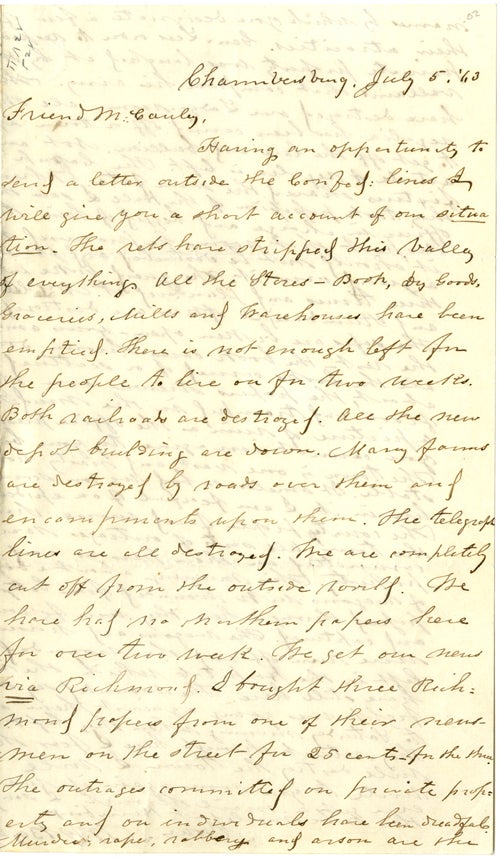 Chambersburg. July 5. '63
Friend McCauly,
Having an opportunity to
send a letter outside the Confed: lines I
will give you a short account of our situa
tion. The rebs have stripped this Valley
of everything. All the Stores – Book, Dry Goods,
Groceries, Mills and Warehouses have been
emptied. There is not enough left for
the people to live on for two weeks.
Both railroads are destroyed. All the new
depot building are down. Many farms
are destroyed by roads over them and
encampments upon them. The telegraph
lines are all destroyed. We are completely
cut off from the outside world. We
have had no Northern papers here
for over two week. We get our news
via Richmond. I bought three Rich=
mond papers from one of their news-
men on the street for 25 cents – for the three
The outrages committed on private prop=
erty and on individuals have been dreadful.
Murder, rape, robbery and arson are the